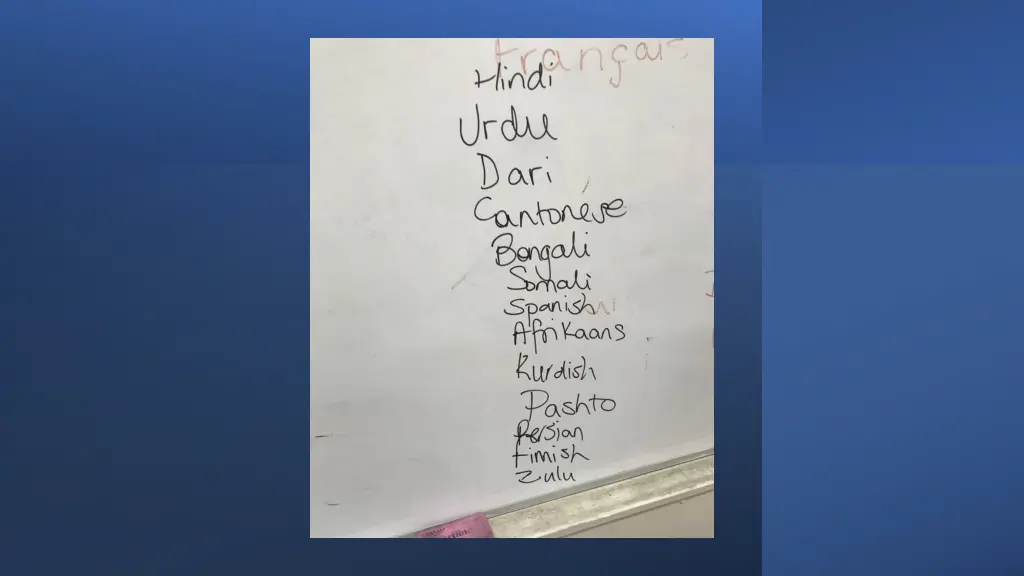 français
Hindi
Urdu
Dari
Cantonese
Bengali
Somali
Spanish
Afrikaans
Kurdish
Pashto
Persian
Finnish
Zulu